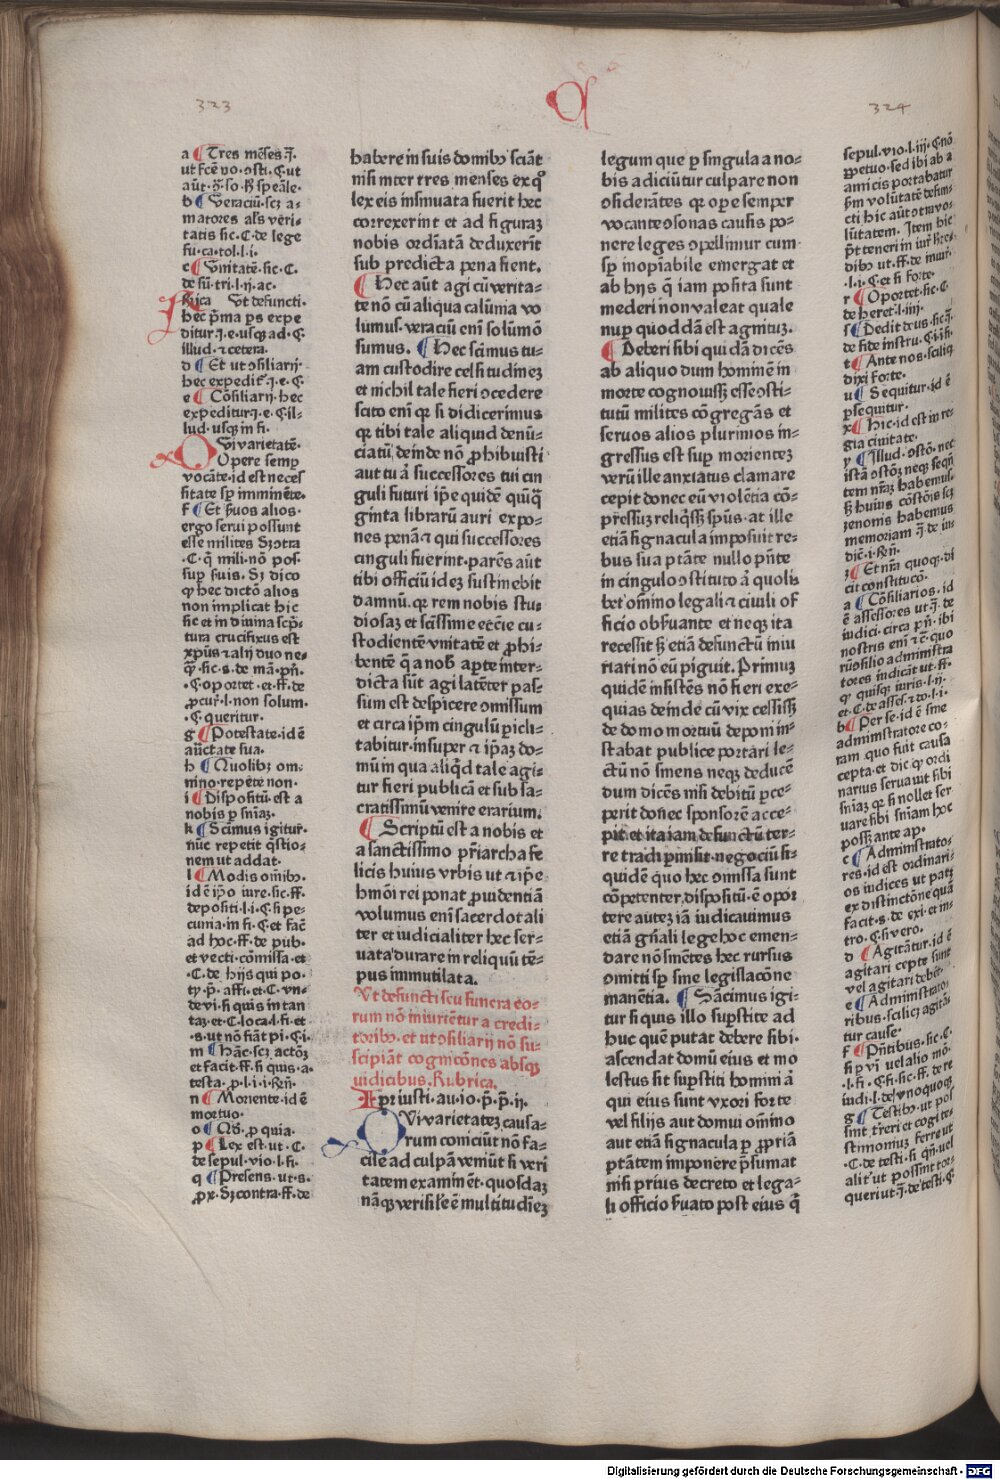 323
324
a Tres mēses .j.
ut fcē no. ↄsti. C. ut
aūt. g̅. so. h̅ speāle.
b Veraciū. scz a-
matores als veri-
tatis sic. C. de lege
fu. ca. tol. l. i.
c Vnitatē. sic. C.
de sū. tri. l. ij. ac.
Rrica Vt defuncti.
hec p̄ma ps expe
ditur .j. e. usq̨ ad. C.
illud. ⁊ cetera.
d Et ut ↄsiliarij.
hec expedit̄ .j. e. C.
e Cōsiliarij. hec
expeditur .j. e. C. il-
lud. usq̨ in fi.
Qvi varietatē.
Opere semp
vocāte. id est neces
sitate sp̄ imminēte.
f Et ßuos alios.
ergo serui possunt
esse milites Sz ↄtra
.C. q̄ mili. nō pos.
sup suis. Sz dico
ꝙ hec dictō alios
non implicat hic
sic et in diuina scp̄-
tura crucifixus est
xp̄us ⁊ alij duo ne-
q̄z. sic. s. de mā. pn̄.
.C. oportet. et. ff. de
ꝓcur. l. non solum.
.C. queritur.
g Potestate. id ē
aūctate sua.
h Quolibz om-
nino repēte non.
i Dispositū. est a
nobis p sniaz.
k Scimus igitur.
nūc repetit q̄stio-
nem ut addat.
l Modis om̄ibꝰ.
id ē ip̄o iure. sic. ff.
depositi. l. i. C. si pe-
cunia in fi. C. et facē
ad hoc. ff. de pub.
et vecti. cōmissa. et
.C. de hijs qui po.
ty. p̄. affi. et. C. vn-
de vi. si quis in tan
taz. et. C. loca. l. fi. et
.s. ut nō fiāt pi. C. i.
m Hāc. scz actōz
et facit. ff. si quis. a.
testa. p. l. i. i. Rn̄.
n Moriente. id ē
mortuo.
o Qꝺ. ꝓ quia.
p Lex est. ut. C.
de sepul. vio. l. fi.
q Presens. ut. s.
ꝓx. Sz contra. ff. de
habere in suis domibꝰ sciāt
nisi inter tres menses ex qͦ
lex eis insinuata fuerit hec
correxerint et ad figuraz
nobis ordīatā deduxerīt
sub predicta pena fient.
Hec aūt agi cū verita-
te nō cū aliqua calūnia vo
lumus. veraciū eni solūmō
sumus. Hec scīmus tu-
am custodire celsitudinez
et nichil tale fieri ↄcedere
scito eni ꝙ si didicerimus
ꝙ tibi tale aliquid denū-
ciatū deinde nō ꝓhibuisti
aut tu aut successores tui cin
guli futuri ip̄e quidē quiq̄
ginta librarū auri expo-
nes penā ⁊ qui successores
cinguli fuerint. parēs aūt
tibi officiū idez sustinebit
damnū. ꝙ rem nobis stu-
diosaz et scissime etc̄ie cu-
stodientē vnitatē et ꝓhi-
bentē q̄ a nobꝭ apte inter-
dicta sūt agi latēter pas-
sum est despicere omissum
et circa ip̄m cingulū picli-
tabitur. insuper ⁊ ip̄az do-
mū in qua aliqd tale agi-
tur fieri publicā et sub sa-
cratissimū venire erarium.
Scriptū est a nobis et
a sanctissimo pr̄iarcha fe
licis huius vrbis ut ⁊ ip̄e
hmōi rei ponat ꝓuidentiā
volumus eni sacerdotali
ter et iudicialiter hec ser-
uata durare in reliquū tē-
pus immutilata.
Vt defuncti seu funera eo-
rum nō iniuriētur a credi-
toribꝰ. et ut ↄsiliarij nō su-
scipiāt cognicōnes absq̨
iudicibus. Rubrica.
Ipr iusti. au. io. p̄. p̄. ij.
Qvi varietatez causa-
rum coniciūt nō fa-
cile ad culpā veniūt si veri
tatem examinēt. quosdaz
nāq̨ verisile ē multitudīez
legum que p singula a no-
bis adiciūtur culpare non
ↄsiderātes ꝙ ope semper
vocante ↄsonas causis po-
nere leges ↄpellimur cum
sp̄ inopiabile emergat et
ab hijs q̄ iam posita sunt
mederi non valeat quale
nup quoddā est agnituz.
Deberi sibi quidā dicēs
ab aliquo dum hominē in
morte cognouisset esse ↄsti-
tutū milites cōgregās et
seruos alios plurimos in-
gressus est sup morientez
verū ille anxiatus clamare
cepit donec eū violētia cō-
pressuz reliq̄sset spūs. at ille
etiā signacula imposuit re-
bus sua ptāte nullo pn̄te
in cingulo ↄstituto aut quoli-
bet om̄ino legali ⁊ ciuili of
ficio obſuante et neq̨ ita
recessit ß etiā defunctū iniu
riari nō eū piguit. Primuz
quidē insistēs nō fieri exe-
quias deinde cū vix cessisset
de domo mortuū depom in-
stabat publice portāri le-
ctū nō sinens neq̨ deducē
dum dicēs nisi debitū pce-
perit donec sponsorē acce-
pit et ita iam defunctū ter-
re tradi pmisit. negociū si-
quidē quo hec omissa sunt
cōpetenter dispositū ē opor
tere autez iā iudicauimus
etiā gn̄ali lege hoc emen-
dare nō sinētes hec rursus
omitti sp̄ sine legislacōne
manētia. Sācimus igi-
tur si quis illo supstite ad
huc quē putat debere sibi.
ascendat domū eius et mo
lestus sit supstiti homini aut
qui eius sunt vxori forte
vel filijs aut domui om̄ino
aut etiā signacula p ꝓpriā
ptātem imponere p̄sumat
nisi prius decreto et lega-
li officio ßuato post eius q̄
sepul. vio. l. iij. C. nō
ꝑpetuo. sed ibi ab a
amicis portabatur
ßm volūtatē defun-
cti hic aūt ↄtra vo-
lūtatem. Item hic
pn̄t teneri in iur heres
dibꝰ ut. ff. de iniur.
.l. i. C. et si forte.
r Oportet. sic. C.
de heret. l. iiij.
s Dedit deus. sic .j.
de fide instru. C. i. fi.
t Ante nos. scaliq̨
dixi forte.
u Sequitur. id ē
ꝑsequitur.
x Hic. id est in re-
gia ciuitate.
y Illud. ↄstō. nec
istā ↄstōz neq̨ sequē
tem nr̄az habemus
ß huius cōstōis scz
zenonis habemus
memoriam .j. de in-
dic̄. i. Rn̄.
z Et nr̄a quoq̨. di
cit constitucō.
a Cōsiliarios. id
ē assessores ut .j. de
iudici. circa pn̄. ibi
nostris eni ⁊ c̄. quo
rū ↄsilio administra
tores indicāt ut. ff.
ꝙ quisq̨ iuris. l. ij.
et. C. de asses. ⁊ do. l. i.
b Per se. id ē sine
administratore co-
ram quo fuit causa
cepta. et dic ꝙ ordi
narius seruauit sibi
sniaz ꝙ si nollet ser
uare sibi sniam hoc
possz ante ap.
c Administrato-
res. id est ordinari-
os iudices ut pati
ex distinctōne quā
facit. s. de exi. et in-
tro. C. si vero.
d Agitātur. id ē
agitari cepte sunt
vel agitari debēt.
e Administrato
ribus. scalicz agitā
tur cause.
f Pn̄tibus. sic. C.
si p vi uel alio mō.
.l. fi. C. fi. sic. ff. de re
iudi. l. de vnoquoq̨.
g Testibꝰ. ut pos
sint tr̄eri et cogi te-
stimonium ferre ut
.C. de testi. si qn̄. uel
alit̄ ut possint tor-
queri ut .j. de testi. C.
Digitalisierung gefördert durch die Deutsche Forschungsgemeinschaft - DFG